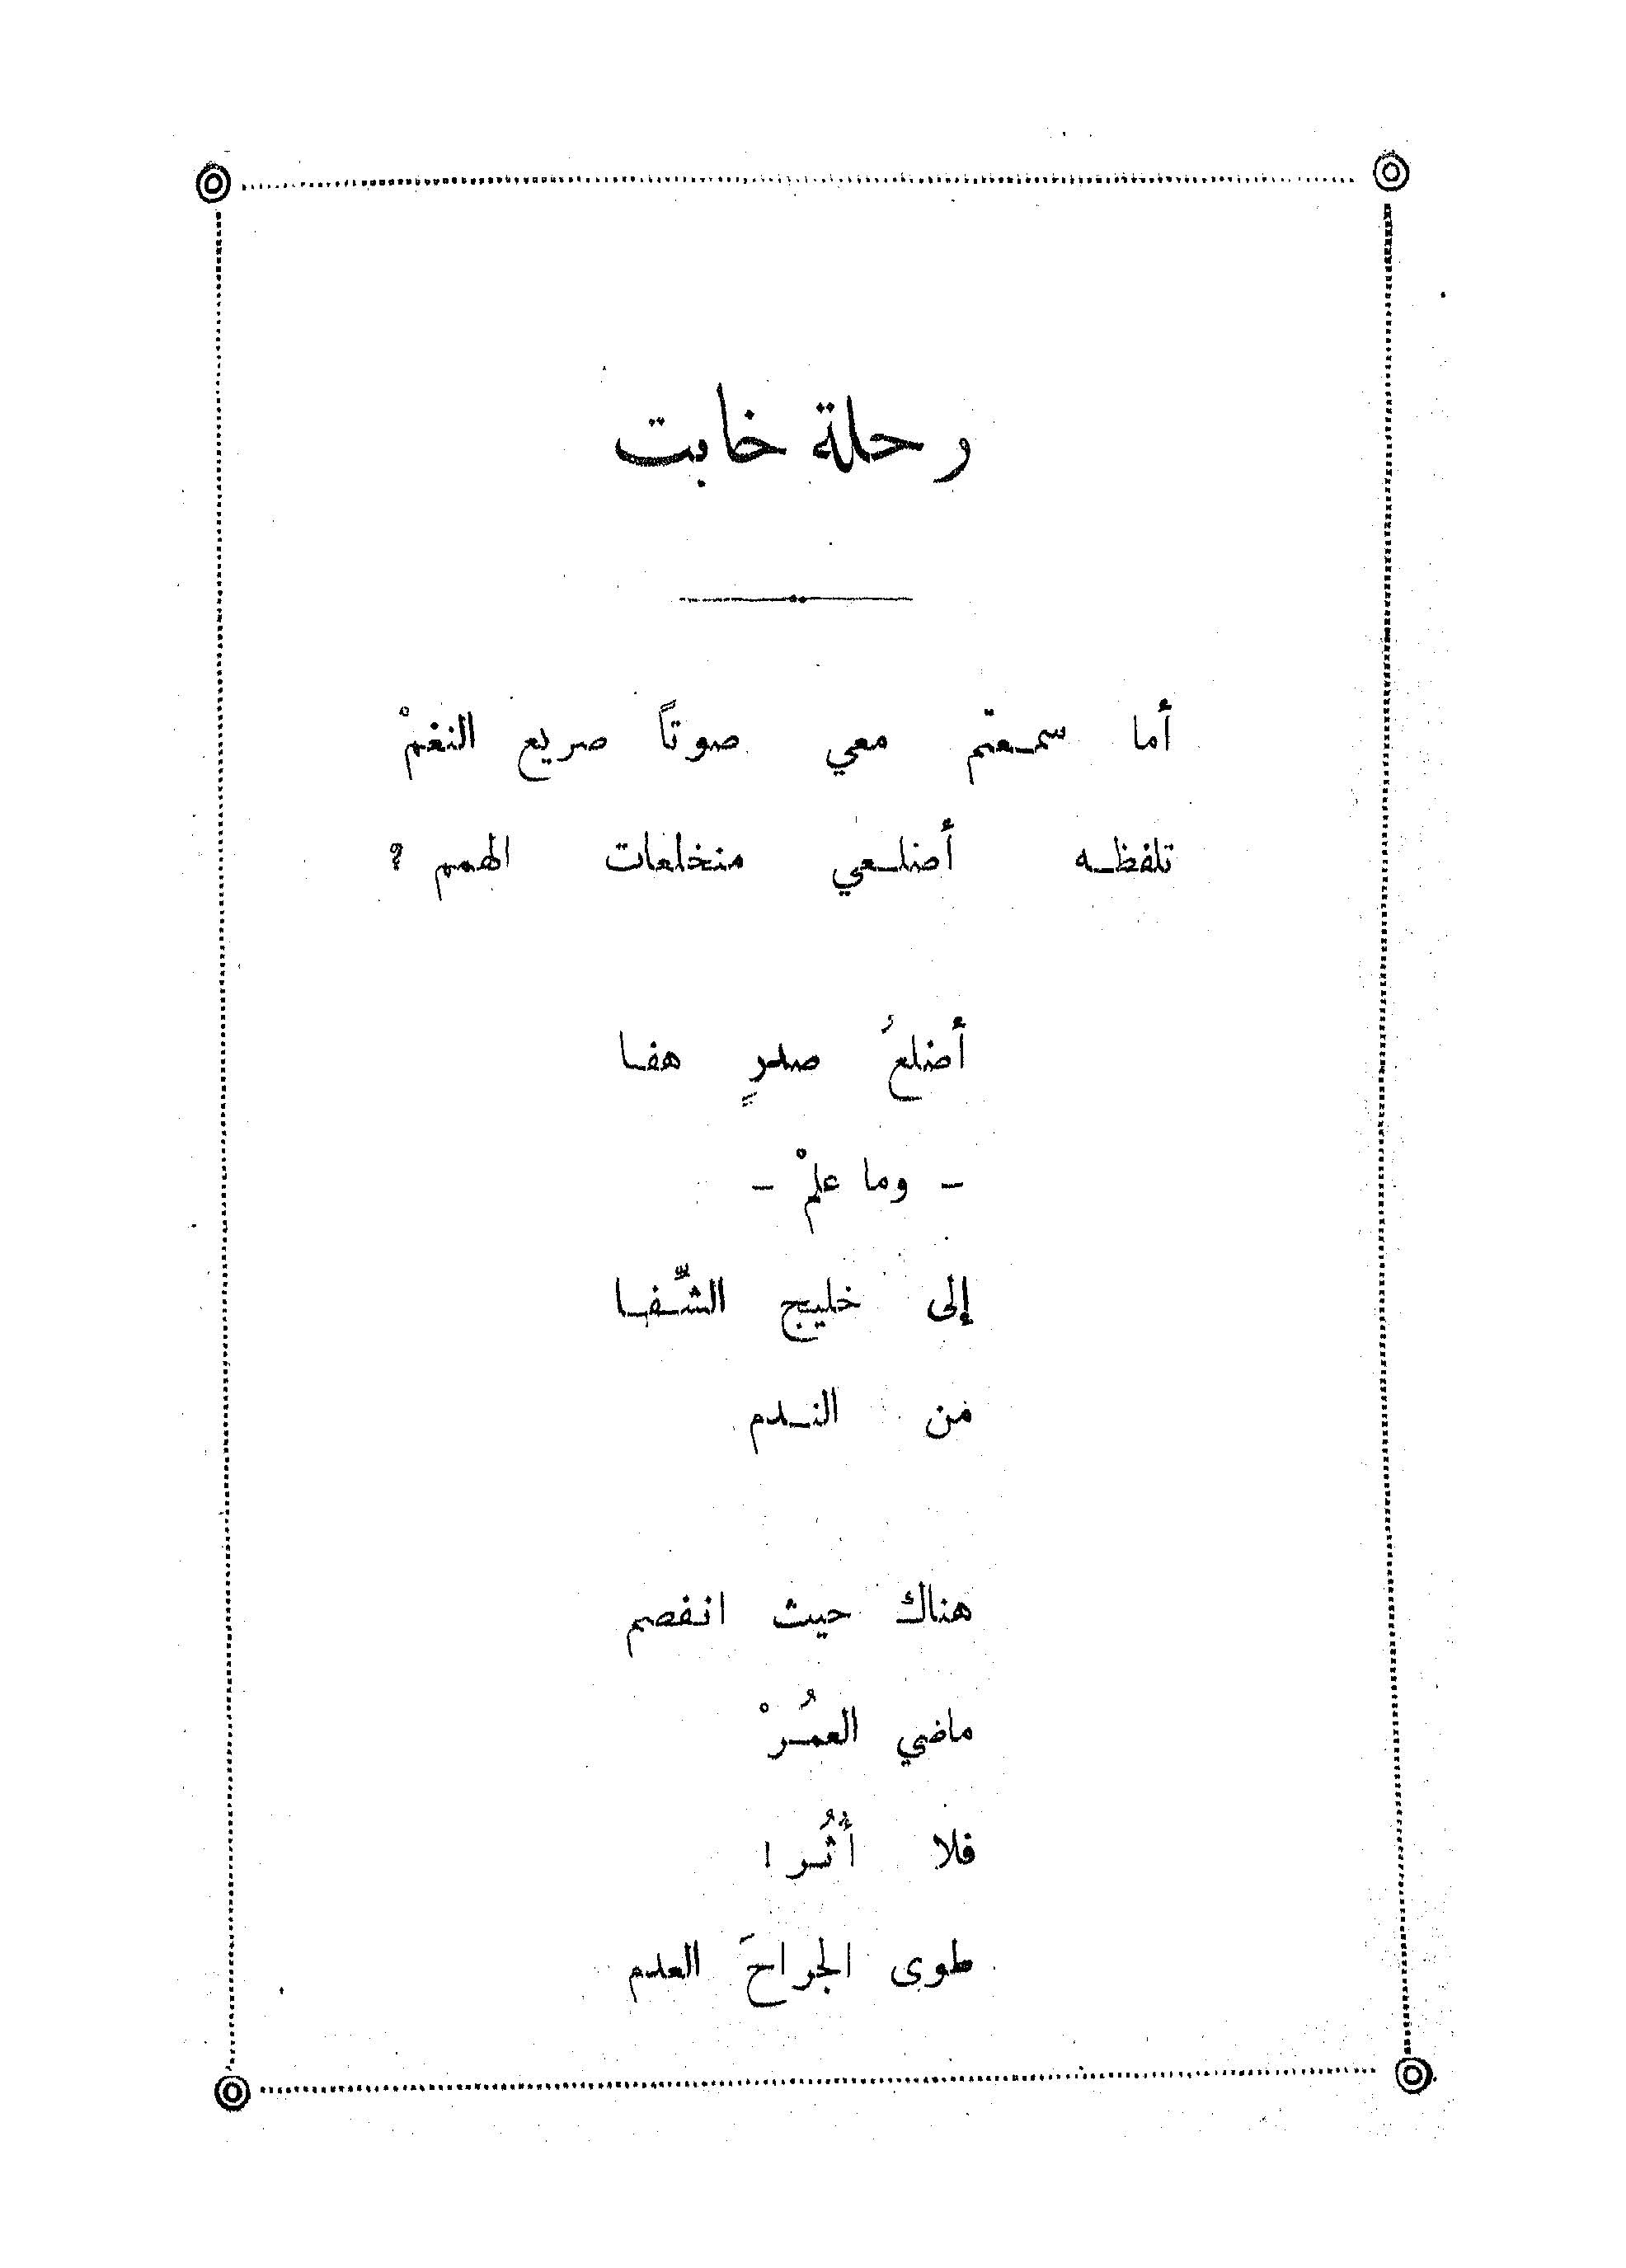 رحلة خابت
أما سمعتم معي صوتاً صريع النغمْ
تلفظه أضلعي منخلعات الهمم ؟
أضلعُ صدرٍ هفا
- وما علمْ -
إلى خليج الشِّفا
من الندم
هناك حيث انفصم
ماضي العمُرْ
فلا أُثُر !
طوى الجراحَ العدم